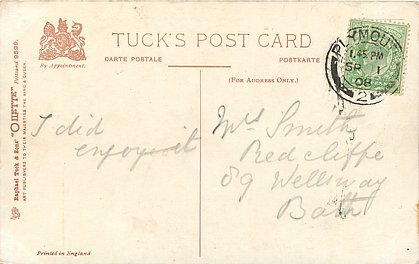 TUCK'S POST CARD
CARTE POSTALE
POSTKARTE
(FOR ADDRESS ONLY.)
By Appointment.
Raphael Tuck & Sons' "OILETTE" Postcard 9529.
ART PUBLISHERS TO THEIR MAJESTIES THE KING & QUEEN.
PLYMOUT
11.45 PM
SP 1
08
2
I did
enjoy it
Mrs Smith
Redcliffe
89 Wellsway
Bath
Printed in England